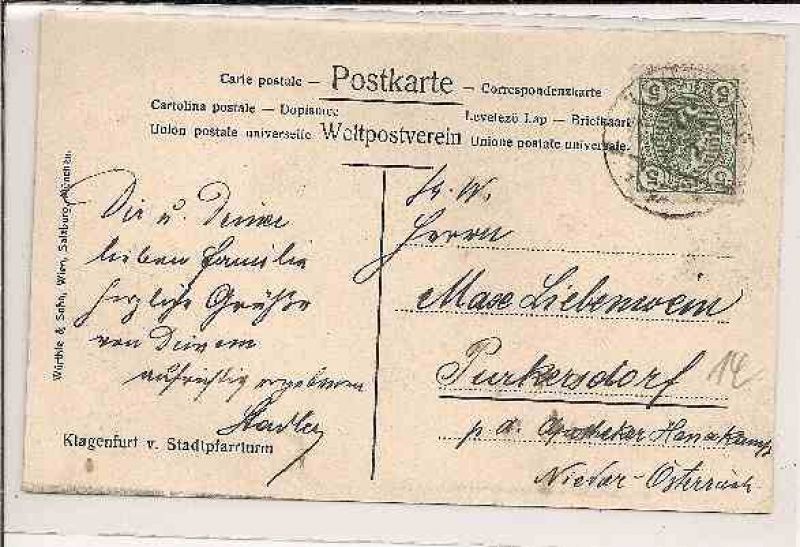 Carte postale — Postkarte — Correspondenzkarte
Cartolina postale — Dopisnice Levelező Lap — Briefkaart
Union postale universelle Weltpostverein Unione postale universale.
5 5
5 5
Würthle & Sohn, Wien, Salzburg, München.
Dir u. Deine
lieben Familie
herzliche Grüße
von Deinem
aufrichtig ergebenen
Stadler
Klagenfurt v. Stadtpfarrturm
Sr. W.
Herrn
Max Liebenwein
Purkersdorf
14
p. d. Apotheker
Nieder-Österreich